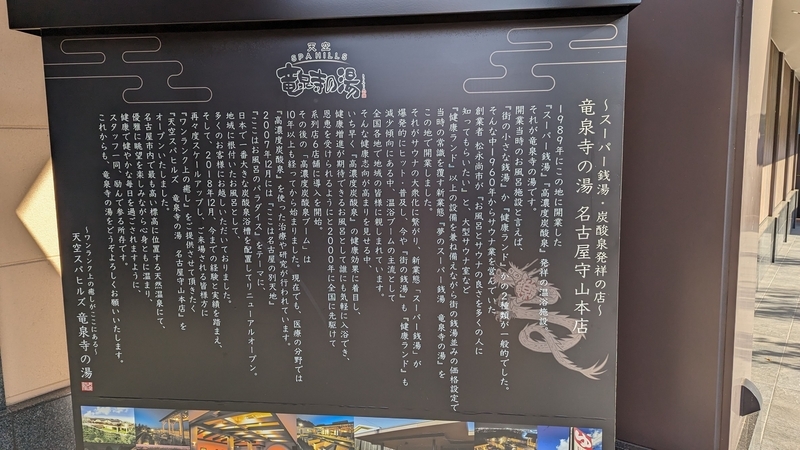 天空
SPA HILLS
竜泉寺の湯
～スーパー銭湯・炭酸泉発祥の店～
竜泉寺の湯 名古屋守山本店
1989年にこの地に開業した
『スーパー銭湯』『高濃度炭酸泉』発祥の温浴施設、
それが竜泉寺の湯です。
開業当時のお風呂施設の中と言えば、
『街の小さな銭湯』か『健康ランド』かの2種類が一般的でした。
そんな中1960年からサウナ業を営んでいた、
創業者 松永尚市が「お風呂とサウナの良さを多くの人に
知ってもらいたい」と、大型サウナ室など
『健康ランド』以上の設備を兼ね備えながら街の銭湯並みの価格設定で
当時の常識を覆す新業態『夢のスーパー銭湯 竜泉寺の湯』を
この地で開業しました。
それがサウナの大衆化に繋がり、新業態『スーパー銭湯』が
爆発的にヒット・普及し、今や『街の銭湯』も『健康ランド』も
減少傾向にある中、温浴ブームの主流として
全国各地でその地域の皆様に親しまれています。
そんな健康志向が高まりを見せる中、
いち早く『高濃度炭酸泉』の健康効果に着目し、
健康増進が期待できるお風呂として誰にも気軽に入浴でき、
恩恵を受けられるようにと2000年に全国に先駆けて
系列店6店舗に導入を開始。
その後の『高濃度炭酸泉ブーム』は
10年以上も経ってから始まりました。現在でも、医療の分野では
『高濃度炭酸泉』を使った治療や研究が行われています。
2007年12月には“ここは名古屋の別天地”
“ここはお風呂のパラダイス”をテーマに、
日本で一番大きな炭酸泉浴槽を配置してリニューアルオープン。
地域に根付いたお風呂として
多くのお客様にお越しいただいておりました。
そして2018年12月、今までの経験と実績を踏まえ、
再々度スケールアップし、ご来場される皆様方に
『ワンランク上の癒し』をご提供させて頂きたく
『天空スパヒルズ 竜泉寺の湯 名古屋守山本店』を
オープンいたしました。
名古屋市内で最も高い標高に位置する天然温泉にて、
優雅に眺望を楽しみながら心身ともに温まり、
健康で健やかな毎日を過ごされますように、
スタッフ一同、励んで参る所存です。
これからも、竜泉寺の湯をどうぞよろしくお願いいたします。
～ワンランク上の癒しがここにある～
天空スパヒルズ 竜泉寺の湯